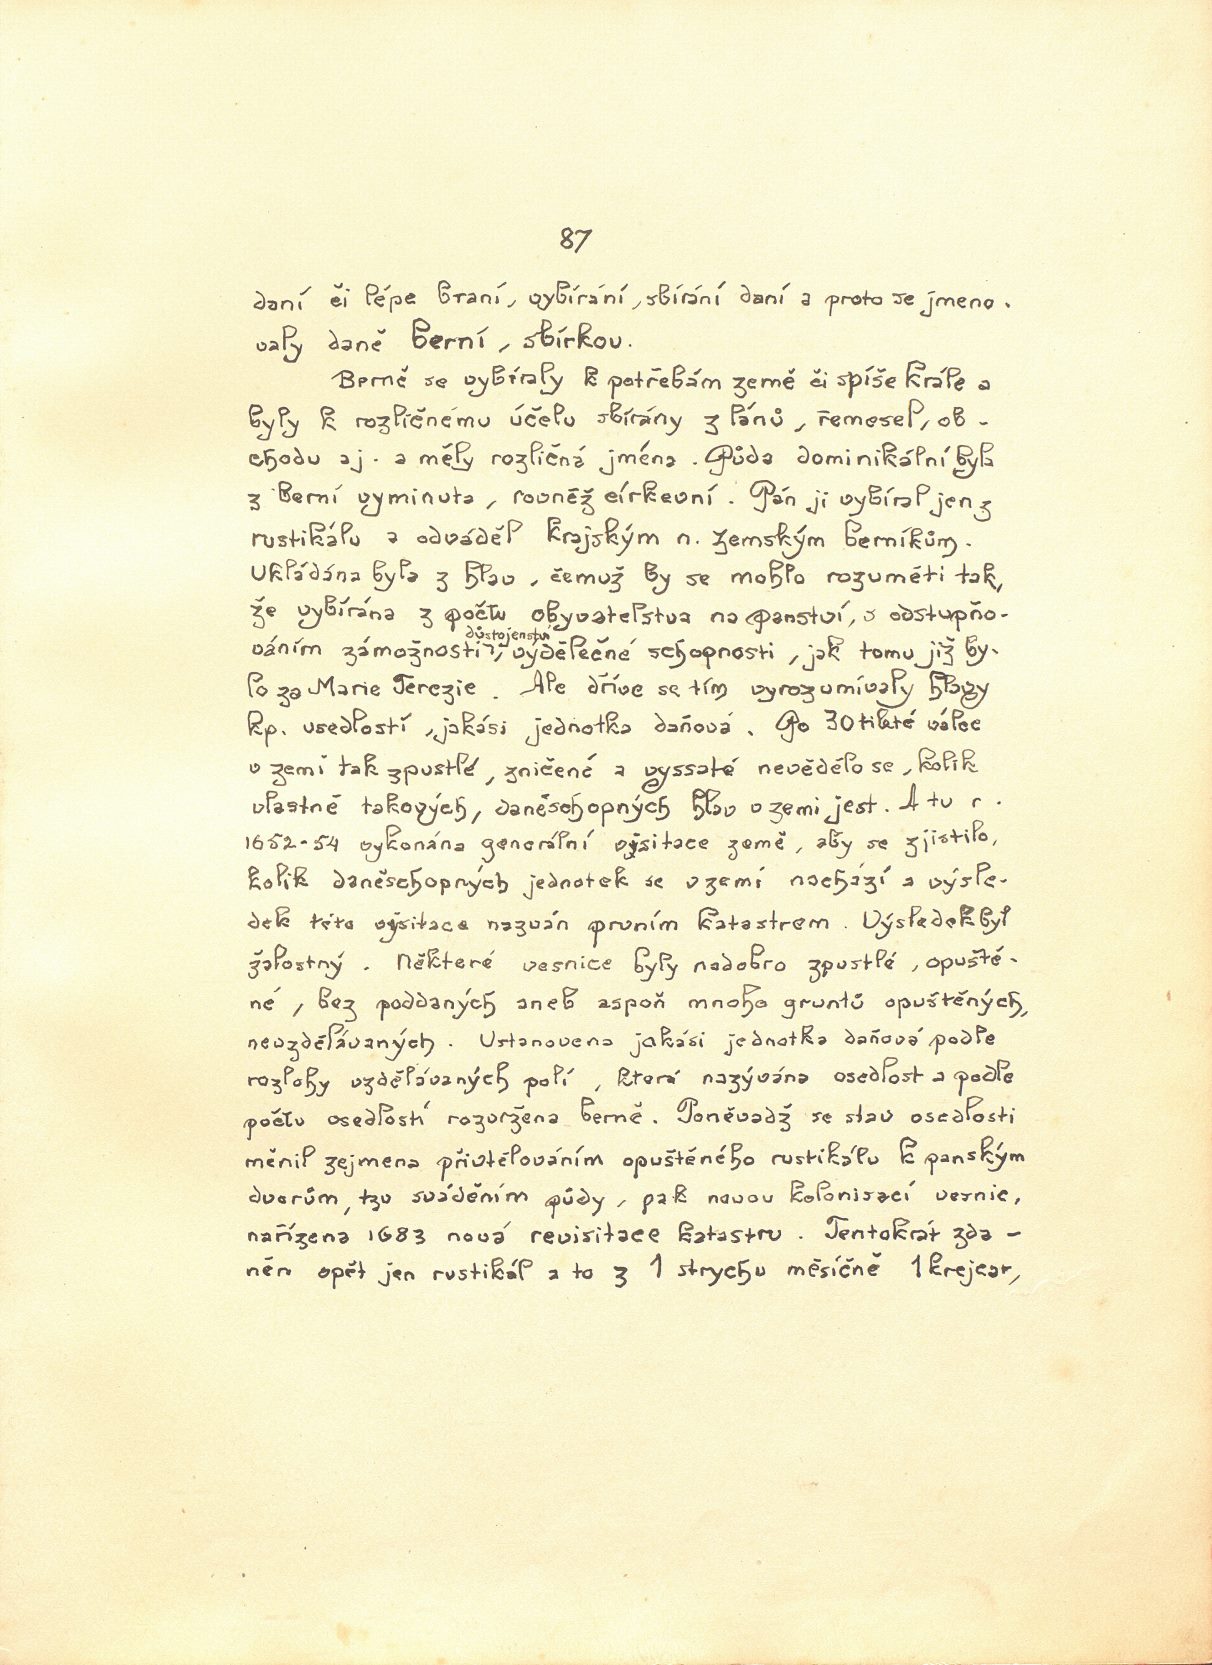 87
daní či lépe braní, vybírání, sbírání daní a proto se jmeno-
valy daně berní, sbírkou.
Berně se vybíraly k potřebám země či spíše krále a
byly k rozličnému účelu sbírány z lánů, řemesel, ob-
chodu aj. a měly rozličná jména. Půda dominikální byla
z berní vyminuta, rovněž církevní. Pán ji vybíral jen z
rustikálu a odváděl krajským n. zemským berníkům.
Ukládána byla z hlav, čemuž by se mohlo rozuměti tak,
že vybírána z počtu obyvatelstva na panství, s odstupňo-
důstojenství
váním zámožnosti, výdělečné schopnosti, jak tomu již by-
lo za Marie Terezie. Ale dříve se tím vyrozumívaly hlavy
kp. usedlostí, jakási jednotka daňová. Po 30tileté válce
v zemi tak zpustlé, zničené a vyssaté nevědělo se, kolik
vlastně takových, daněschopných hlav v zemi jest. A tu r.
1652-54 vykonána generální vysitace země, aby se zjistilo,
kolik daněschopných jednotek se v zemi nachází a výsle-
dek této vysitace nazván prvním katastrem. Výsledek byl
žalostný. Některé vesnice byly nadobro zpustlé, opuště-
né, bez poddaných aneb aspoň mnoho gruntů opuštěných,
nevzdělávaných. Ustanovena jakási jednotka daňová podle
rozlohy vzdělávaných polí, která nazývána osedlost a podle
počtu osedlostí rozvržena berně. Poněvadž se stav osedlosti
měnil zejmena přivtělováním opuštěného rustikálu k panským
dvorům, tzv sváděním půdy, pak novou kolonisací vesnic,
nařízena 1683 nová revisitace katastru. Tentokrát zda-
něn opět jen rustikál a to z 1 strychu měsíčně 1 krejcar,